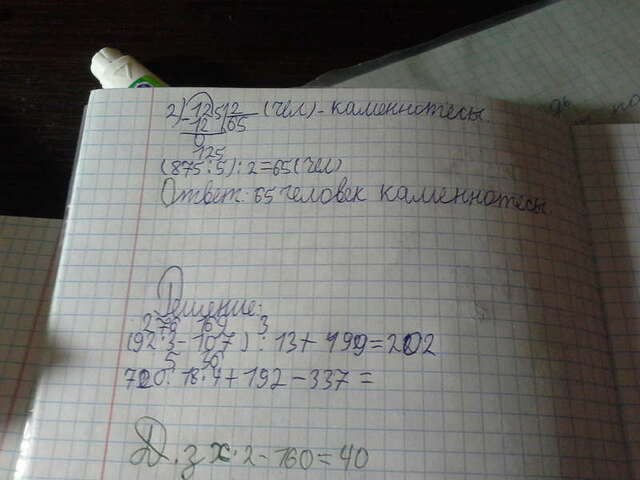 2) 125|2 (чел) - каменнотесы.
12 65
0
125
(875:5):2=65(чел)
Ответ: 65 человек каменнотесы
Решение:
276 169 3
(92·3-107):13+199=202
5 36
720:18·4+192-337=
Д.з х·2-160=40